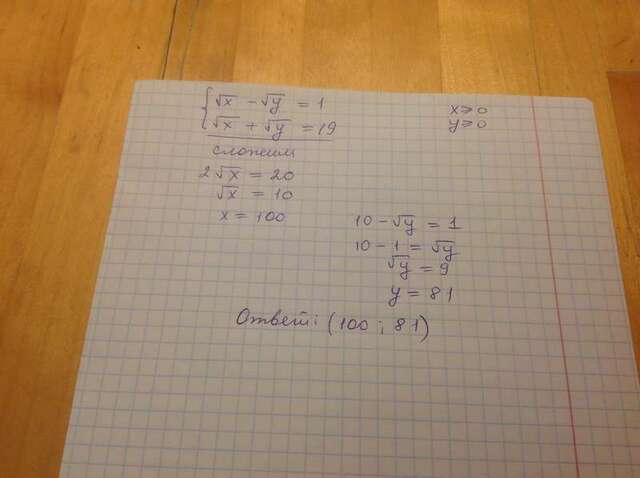 √x - √y = 1
√x + √y = 19
x ⩾ 0
y ⩾ 0
сложим
2√x = 20
√x = 10
x = 100
10 - √y = 1
10 - 1 = √y
√y = 9
y = 81
Ответ: (100 ; 81)